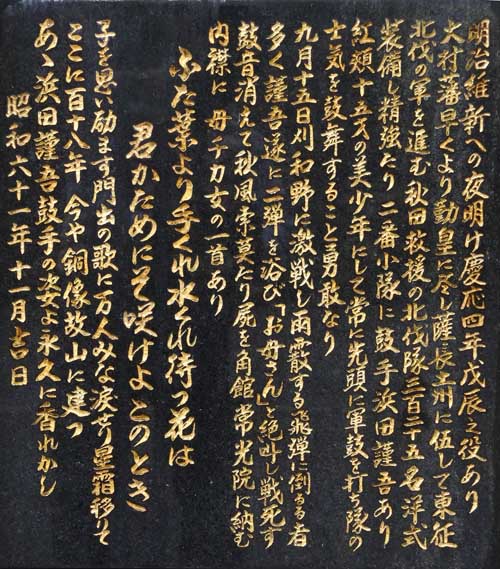 明治維新への夜明け慶応四年戊辰之役あり
大村藩早くより勤皇に尽し薩長土州に伍して東征
北伐の軍を進む秋田救援の北伐隊三百二十五名洋式
装備し精強たり 二番小隊に鼓手浜田謹吾あり
紅頬十五才の美少年にして常に先頭に軍鼓を打ち隊の
士気を鼓舞すること勇敢なり
九月十五日刈和野に激戦し雨霰する飛弾に倒るる者
多く謹吾遂に二弾を浴び「お母さん」と絶叫し戦死す
鼓音消えて秋風索莫たり屍を角館常光院に納む
内襟に 母チカ女の一首あり
ふた葉より手くれ水くれ待つ花は
君かためにそ咲けよこのとき
子を思い励ます門出の歌に万人みな涙せり星霜移りて
ここに百十八年 今や銅像故山に建つ
あゝ浜田謹吾鼓手の姿よ永久に香れかし
昭和六十一年十一月吉日